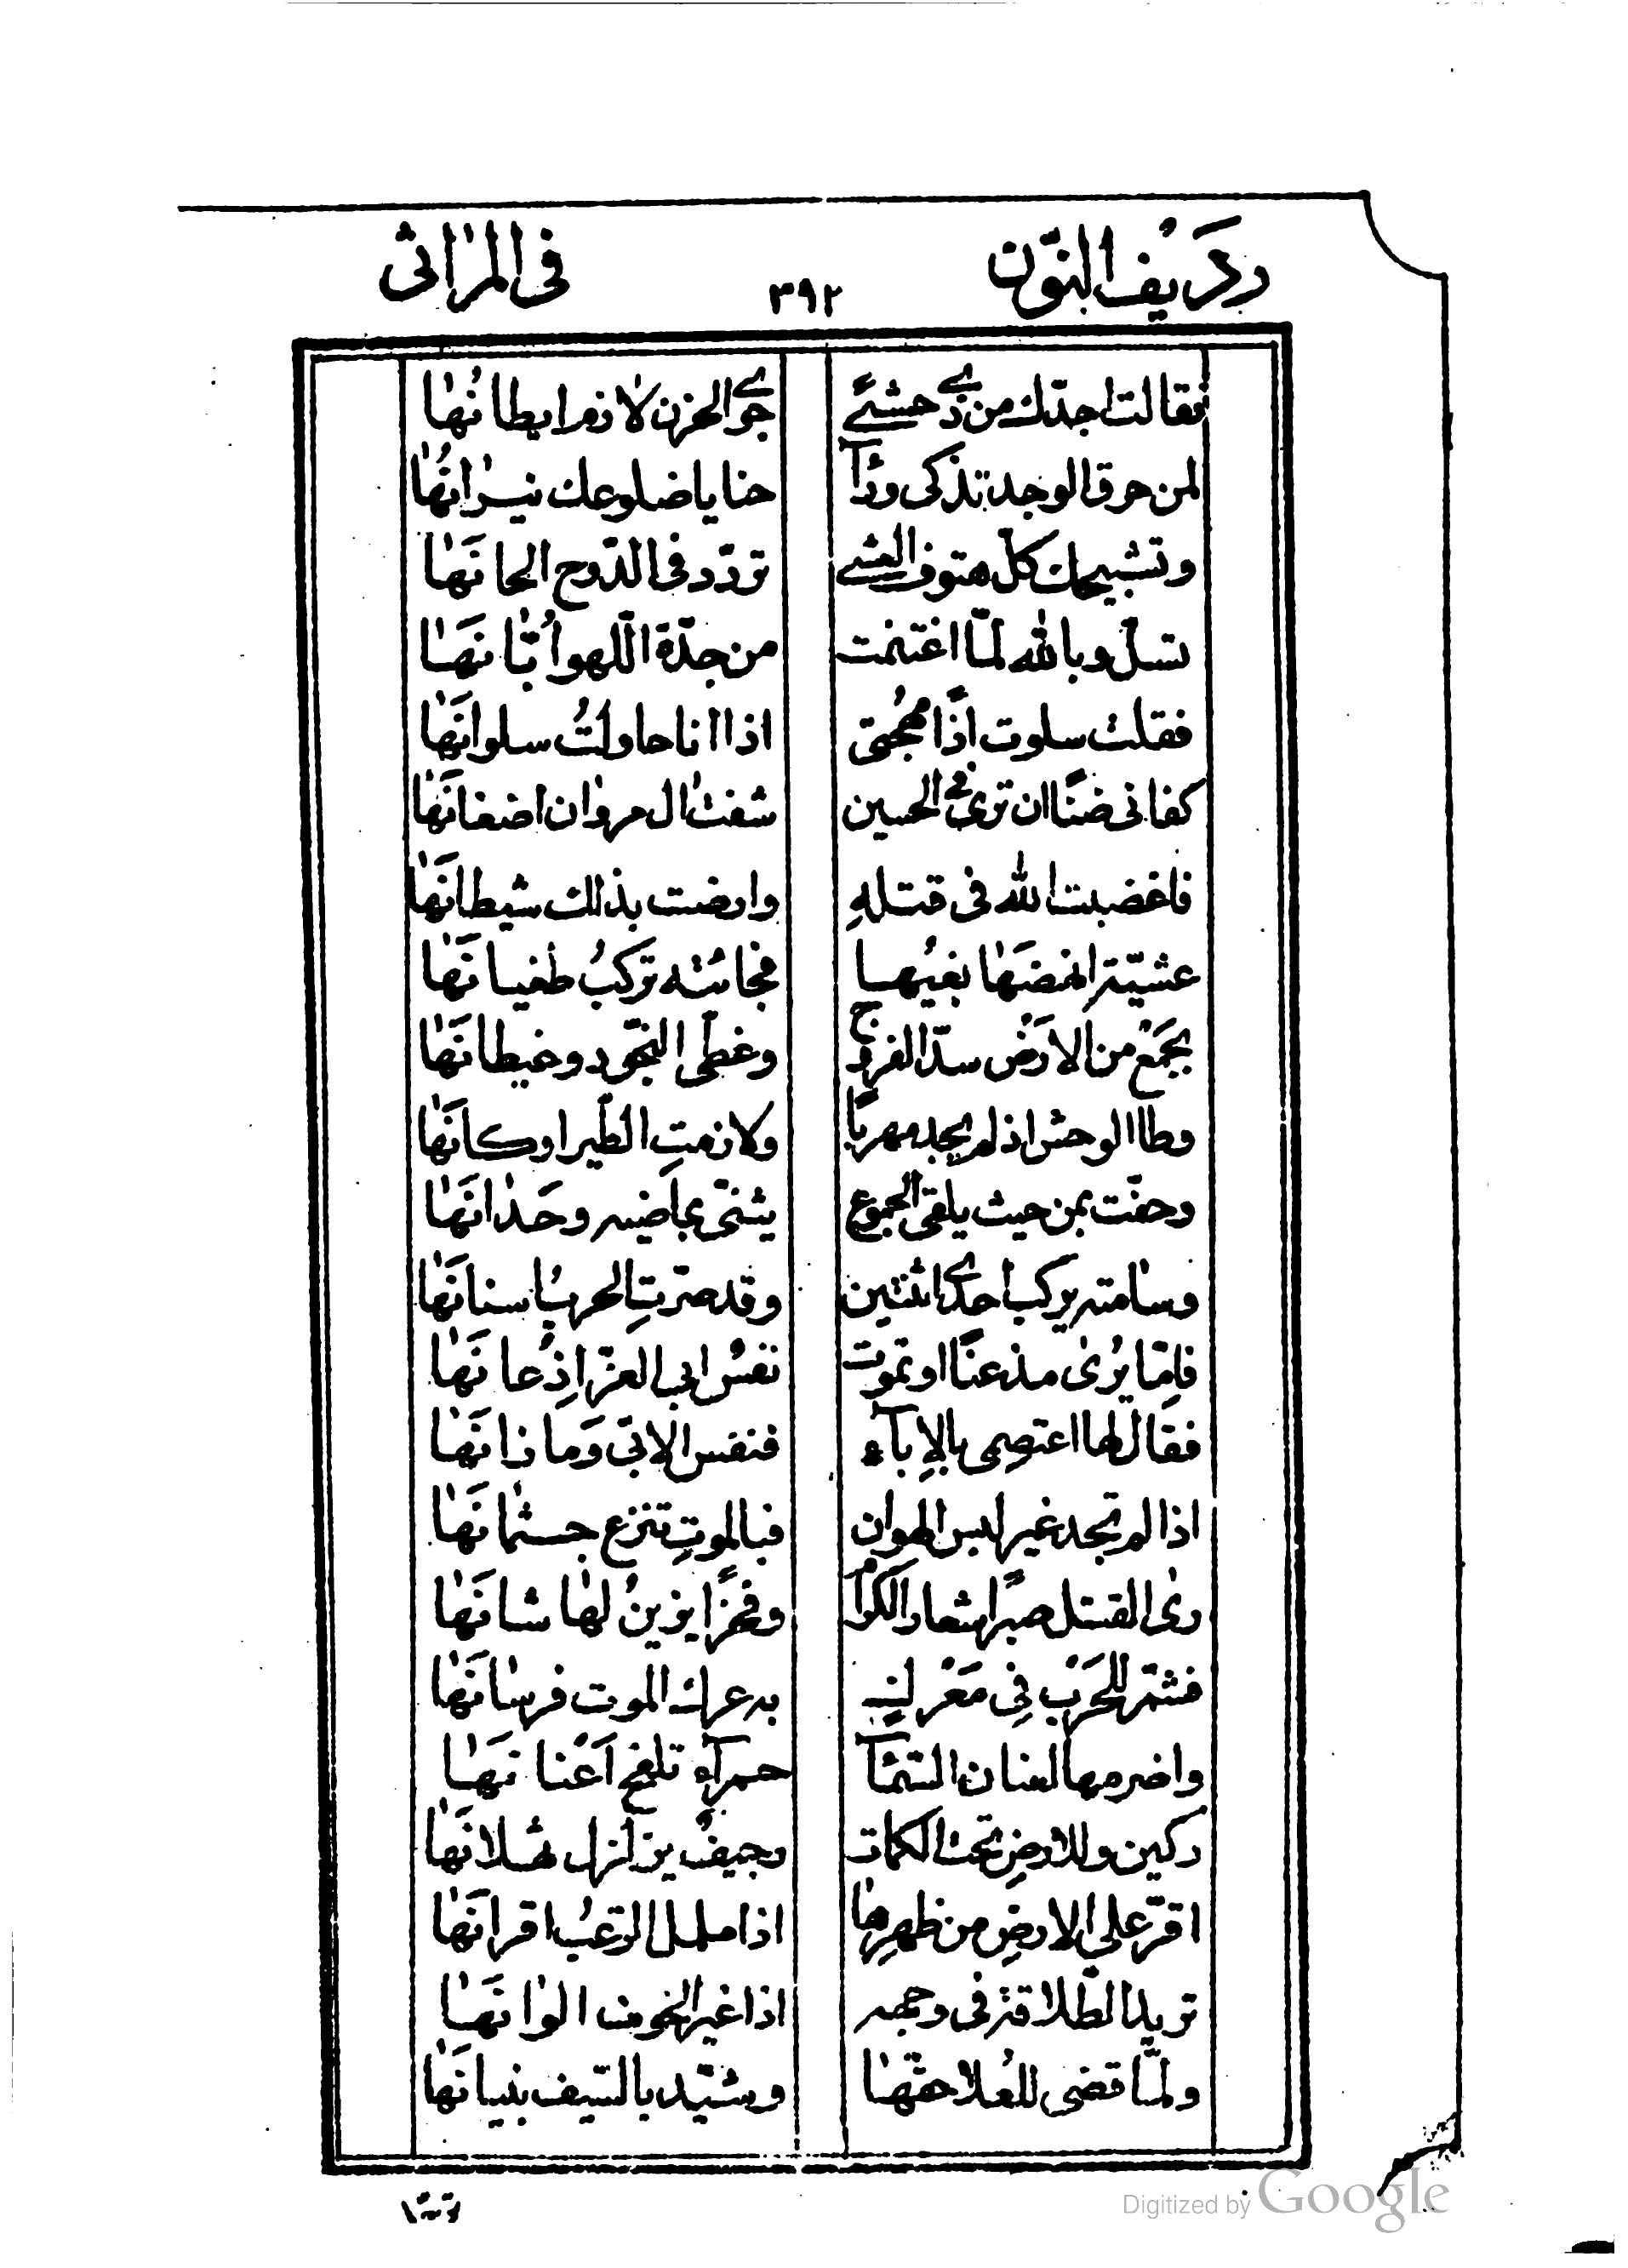 رديف النون ٣٩٢ في المراثي
فقالت اجدّك من ذي حشىً جوي الحزن لازم ايطانُها
لمن حرق الوجد تذكى ورآ حنايا ضلوعك نيرانُها
وتشجيك كل هتوف العشي تردّد في الدّوح الحانَها
تسلّ وبالله لمّا اغتنمت من جدّة اللهو اُبّانهَا
فقلت سلوت اذًا مهجتي اذا انا حاولتُ سلوانَها
كفاني ضنًا ان ترى في الحسين شفت ال مروان اضغانَها
فاغضبت الله في قتلهِ وارضت بذلك شيطانَها
عشيّة انهضَها بغيُها فجائته تركبُ طغيانَها
بجَمْع من الارضْ سدّ الفروج وغطى النّجود وغيطانَها
وطا الوحش اذ لم يجد مهربًا ولازمتِ الطّير اوكانَها
وحفّت بمن حيث يلقى الجموع يثنّي بماضيه وحدانَها
وسامته يركب احدى اثنتين وقد صرّتِ الحرب اسنانَها
فاِمّا يُرى مذعنًا او تموت نفسُ ابى العزّ اِذْعانَها
فقال لها اعتصمي بالاِبآء فنفس الابيّ وَما زانَها
اذا لم تجد غير لبس الهوان فبالموتِ تنزع جسثمانَها
رى القتل صبرًا شعار الكرام وفخرًا يزينُ لها شانَها
فشمّر للحَرْب في مَعْركٍ به عرك الموت فرسانَها
واضرمها لعنان السّمآ حمرآء تلفح اَعْنانهَا
ركين وللارضِ تحت الكمات رجيفٌ يزلزل ثهلانَها
اقرّ على الارضِ من ظهرِها اذا ململ الرّعبُ اقرانَها
تزيد الطّلاقة في وجهه اذا غير الخوف الوانهَا
ولمّا قضى للعُلا حقّها وشيّد بالسّيف بنيانَها
Digitized by Google